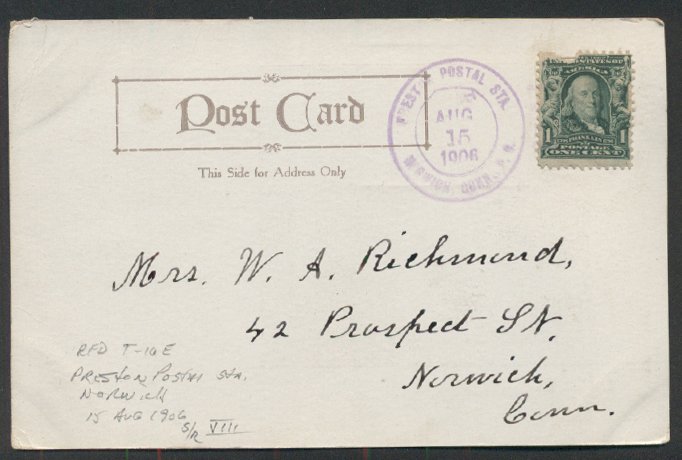 Post Card
This Side for Address Only
POSTAL STA.
AUG
15
1906
NORWICH, CONN., P. O.
UNITED STATES OF
AMERICA
1 1
FRANKLIN
POSTAGE
ONE CENT
Mrs. W. A. Richmond,
42 Prospect St,
Norwich,
Conn.
RFD T-10 E
Preston Postal Sta.
Norwich
15 Aug 1906
S/R VIII